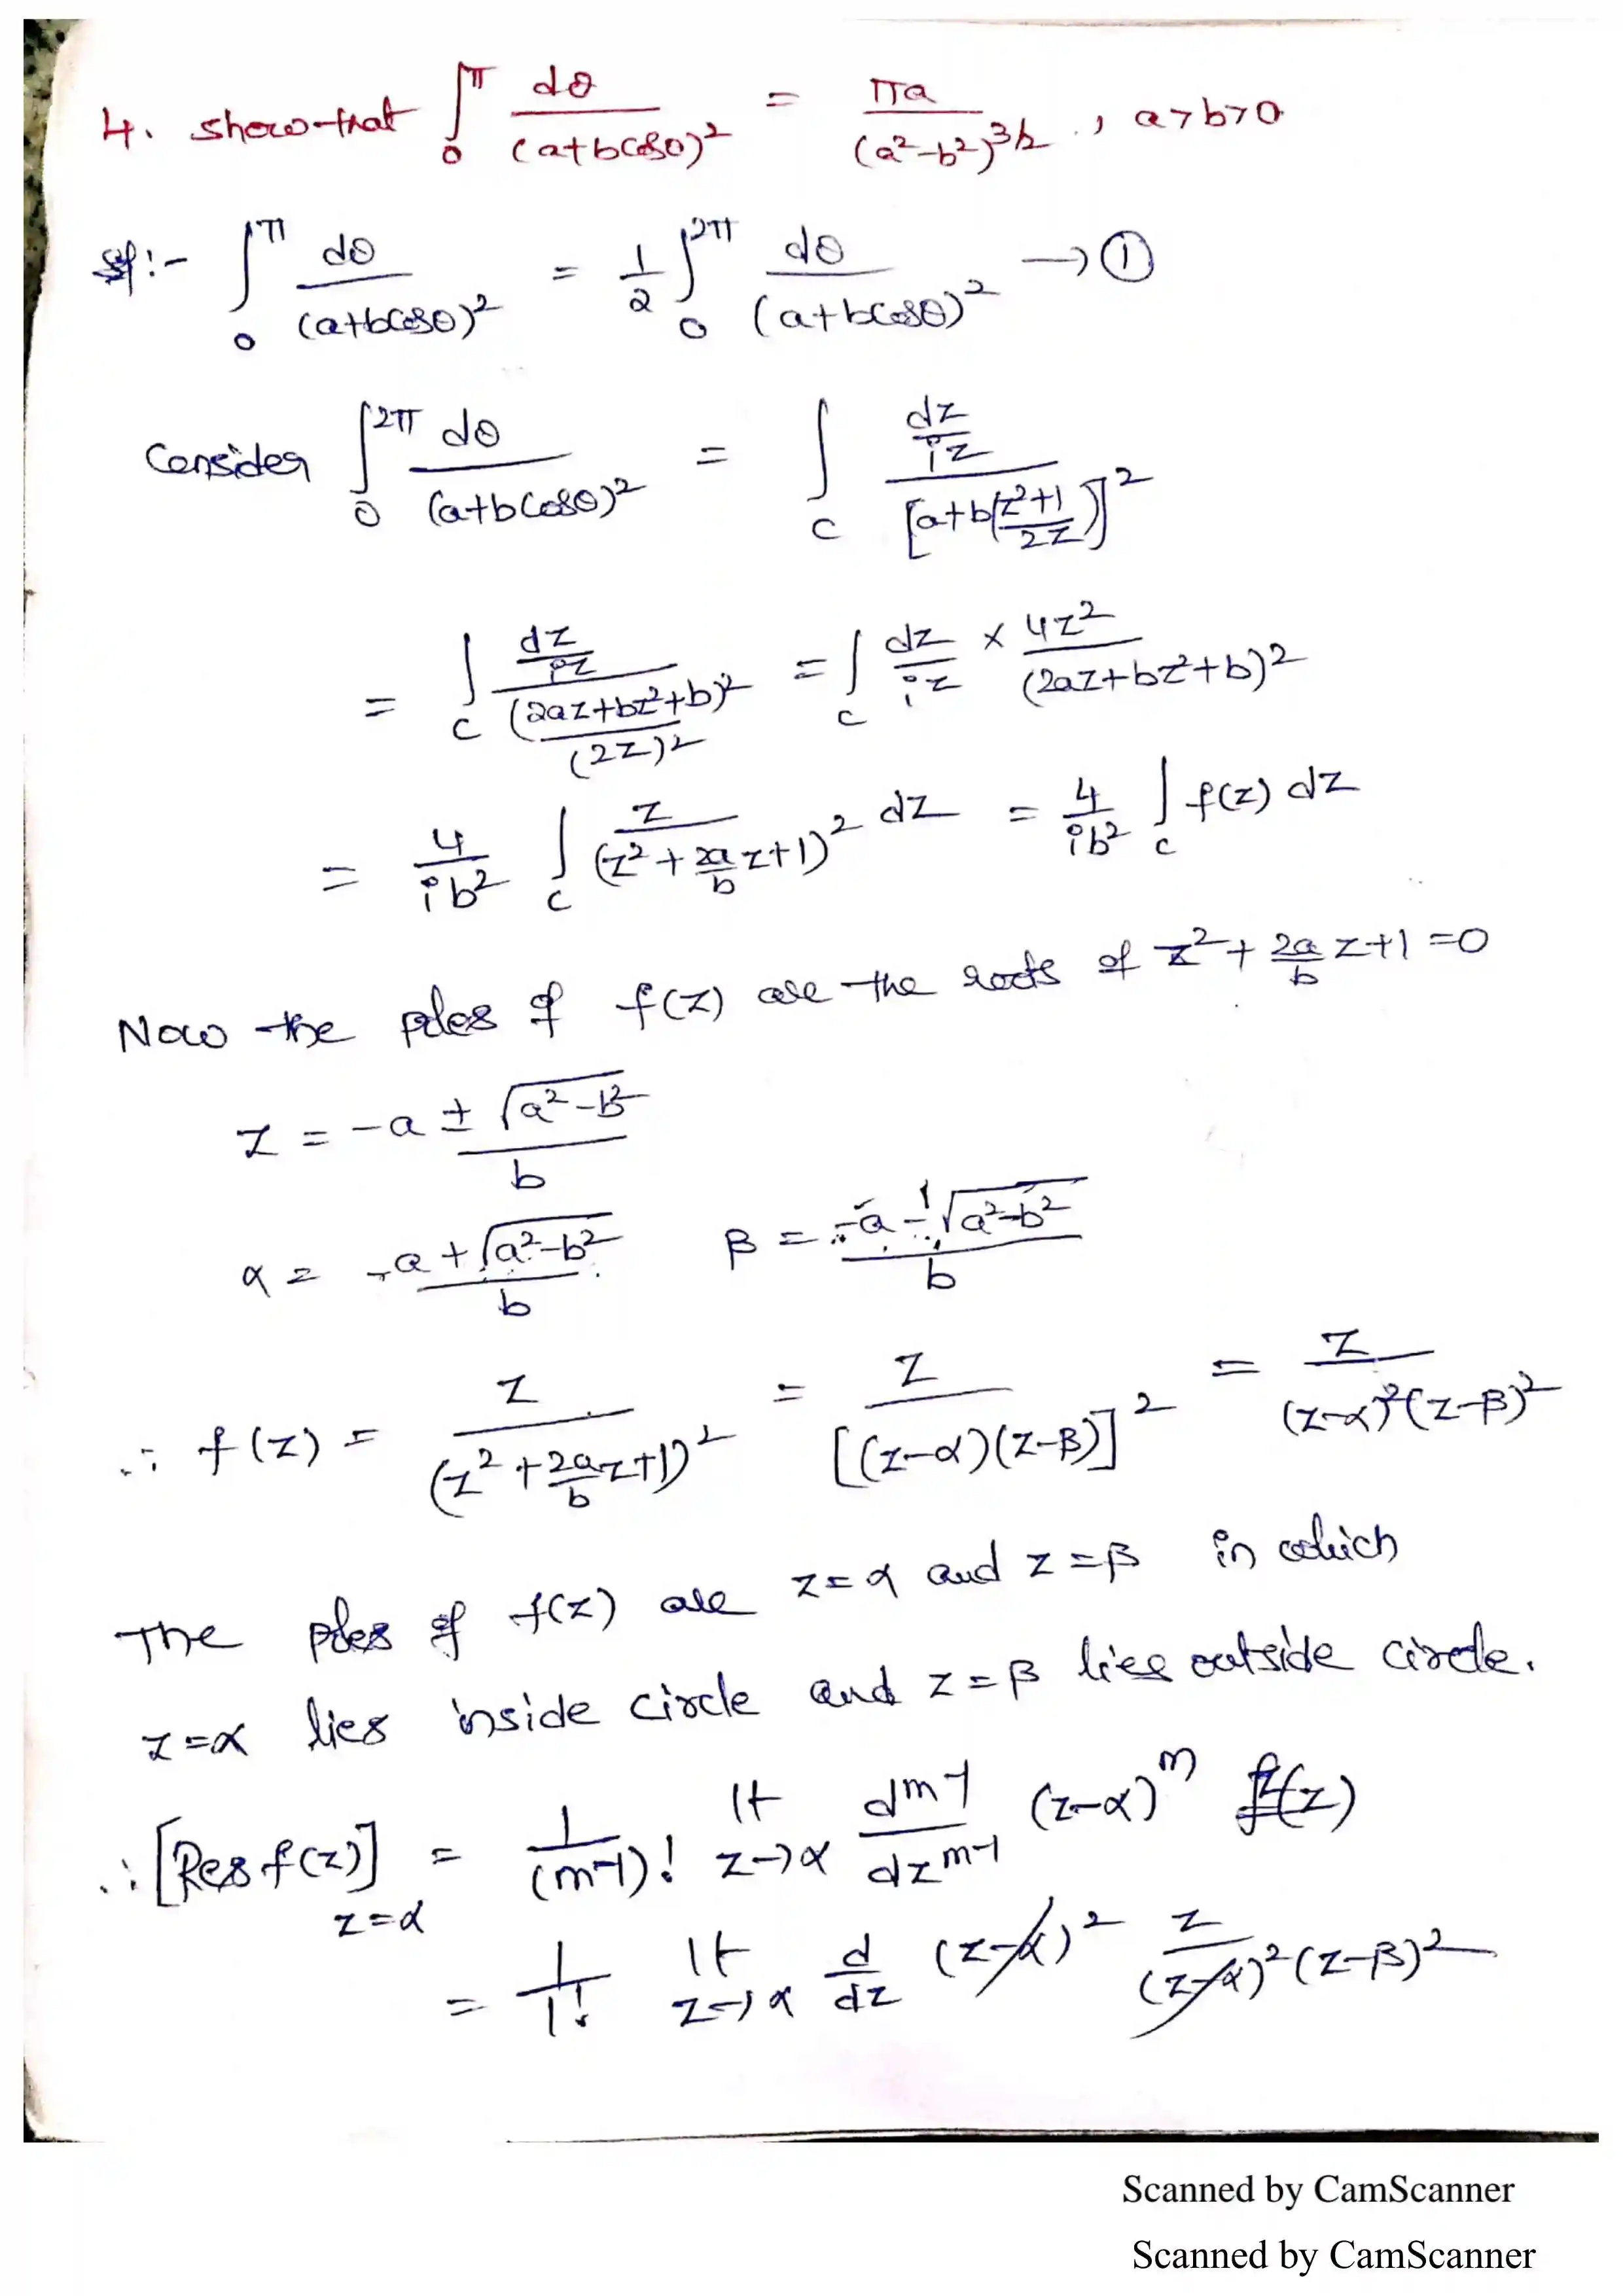 4. show that ∫₀^π dθ/(a+bcosθ)² = πa/(a²-b²)^3/2 , a>b>0
Sol:- ∫₀^π dθ/(a+bcosθ)² = 1/2 ∫₀^2π dθ/(a+bcosθ)² → ①
Consider ∫₀^2π dθ/(a+bcosθ)² = ∫_C (dz/iz)/[a+b(z²+1/2z)]²
= ∫_C (dz/iz)/((2az+bz²+b)²/(2z)²) = ∫_C dz/iz × 4z²/(2az+bz²+b)²
= 4/ib² ∫_C z/(z²+2a/b z+1)² dz = 4/ib² ∫_C f(z) dz
Now the poles of f(z) are the roots of z²+ 2a/b z+1 =0
z = -a ± √(a²-b²) / b
α = -a+√(a²-b²) / b β = -a-√(a²-b²) / b
∴ f(z) = z/(z²+2a/b z+1)² = z/[(z-α)(z-β)]² = z/(z-α)²(z-β)²
The poles of f(z) are z=α and z=β in which
z=α lies inside circle and z=β lies outside circle.
∴ [Res f(z)]_z=α = 1/(m-1)! lt_z→α d^m-1/dz^m-1 (z-α)^m f(z)
= 1/1! lt_z→α d/dz (z-α)² z/(z-α)²(z-β)²
Scanned by CamScanner
Scanned by CamScanner